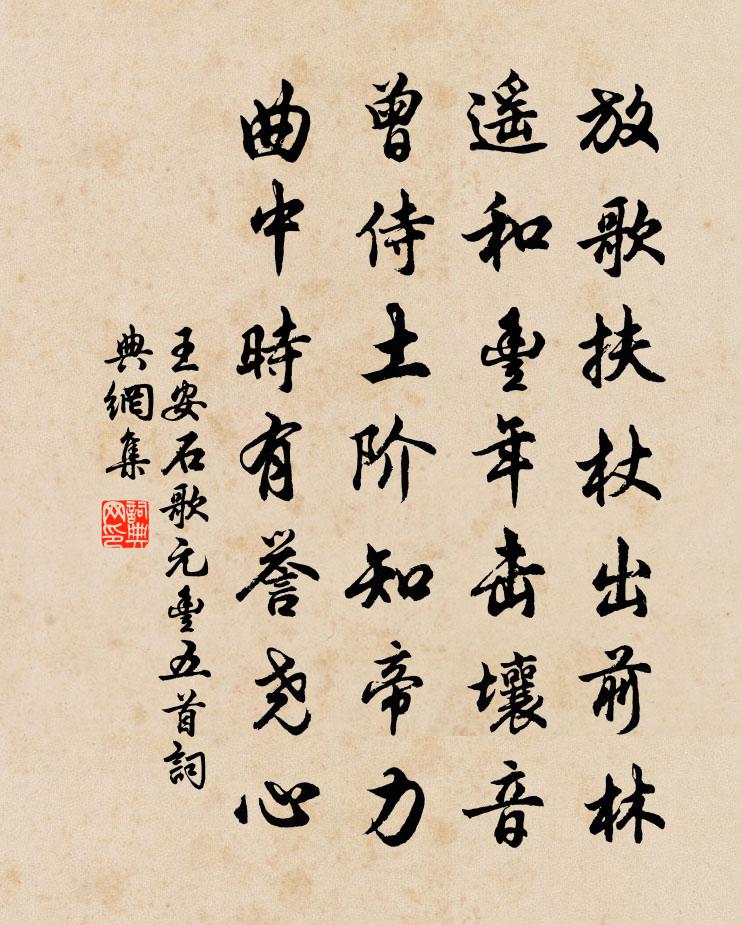 放歌扶杖出前林
遥和豊年击壤音
曾侍土阶知帝力
曲中時有誉尧心
王安石歌元豊五首詞
典網集
詞典网印